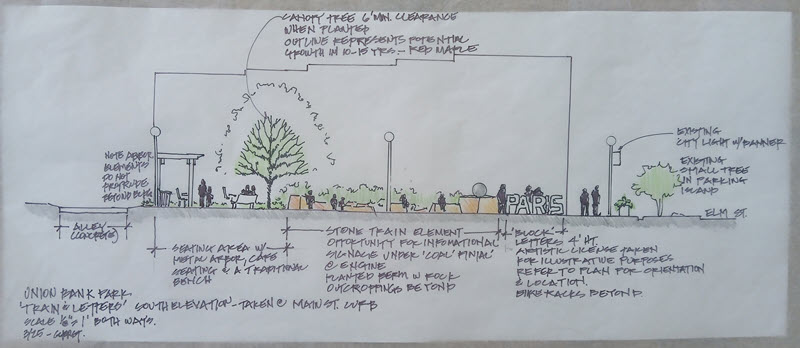 CANOPY TREE 6' MIN. CLEARANCE
WHEN PLANTED
OUTLINE REPRESENTS POTENTIAL
GROWTH IN 10-15 YRS. - RED MAPLE
NOTE ARBOR
ELEMENTS
DO NOT
PROTRUDE
BEYOND
EXISTING
CITY LIGHT W/ BANNER
EXISTING
SMALL TREE
IN PARKING
ISLAND
PARIS
ELM ST.
ALLEY
(CONCRETE)
SEATING AREA W/
METAL ARBOR, CAFE
SEATING & A TRADITIONAL
BENCH
STONE TRAIN ELEMENT
OPPORTUNITY FOR INFORMATIONAL
SIGNAGE UNDER 'COAL FINIAL'
@ ENGINE
PLANTED BERM W/ ROCK
OUTCROPPINGS BEYOND
'BLOCK'
LETTERS 4' HT.
ARTISTIC LICENSE TAKEN
FOR ILLUSTRATIVE PURPOSES
REFER TO PLAN FOR ORIENTATION
& LOCATION.
BIKE RACKS BEYOND.
UNION BANK PARK
'TRAIN & LETTERS' SOUTH ELEVATION - TAKEN @ MAIN ST. CURB
SCALE 1/8" = 1' BOTH WAYS.